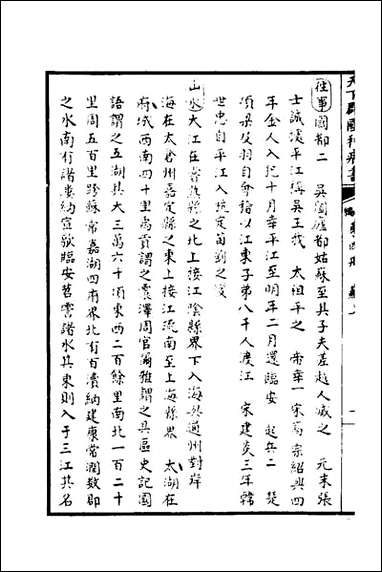 天下郡國利病書
往事 國都二 吳闔廬都姑蘇至其子夫差越人滅之 元末張
士誠據平江稱吳王我 太祖平之 帝幸一宋高宗紹興四
年金人入抱十月幸平江至明年二月還臨安 起兵二 楚
項梁及羽自會稽以江東子弟八千人渡江 宋建炎三年韓
世忠自平江入統定苗劉之變
山水 大江在常熟縣之北上接江陰縣界下入海與通州對岸
海在太倉州嘉定縣之東上接江流南至上海縣界 太湖在
府城西南四十里禹貢謂之震澤周官爾雅謂之具區史記國
語謂之五湖其大三萬六千頃東西二百餘里南北一百二十
里周五百里跨蘇常嘉湖四府界北有百瀆納建康常潤數郡
之水南有諸漊納宣歙臨安苕霅諸水其東則入于三江其名